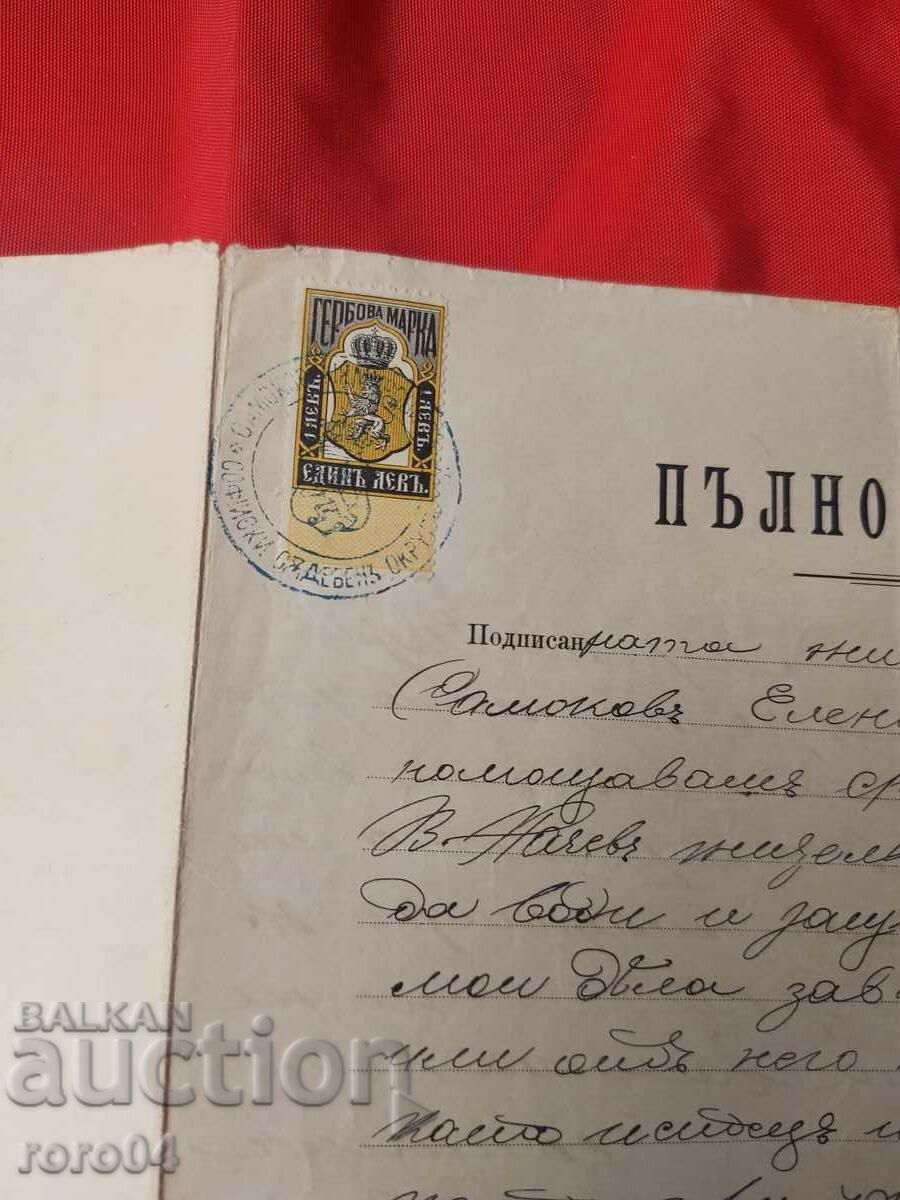 ГЕРБОВА МАРКА
1 ЛЕВЪ.
1 ЛЕВЪ.
ЕДИНЪ ЛЕВЪ.
СОФИЙСКИ СѪДЕБЕНЪ ОКРУ
ПЪЛНО
Подписанната жи
Самоковъ Елен
помощаващ ср
В. Начевъ жител
да води и защ
мои дѣла зав
или отъ него
като истецъ и
BALKAN
auction
roro04